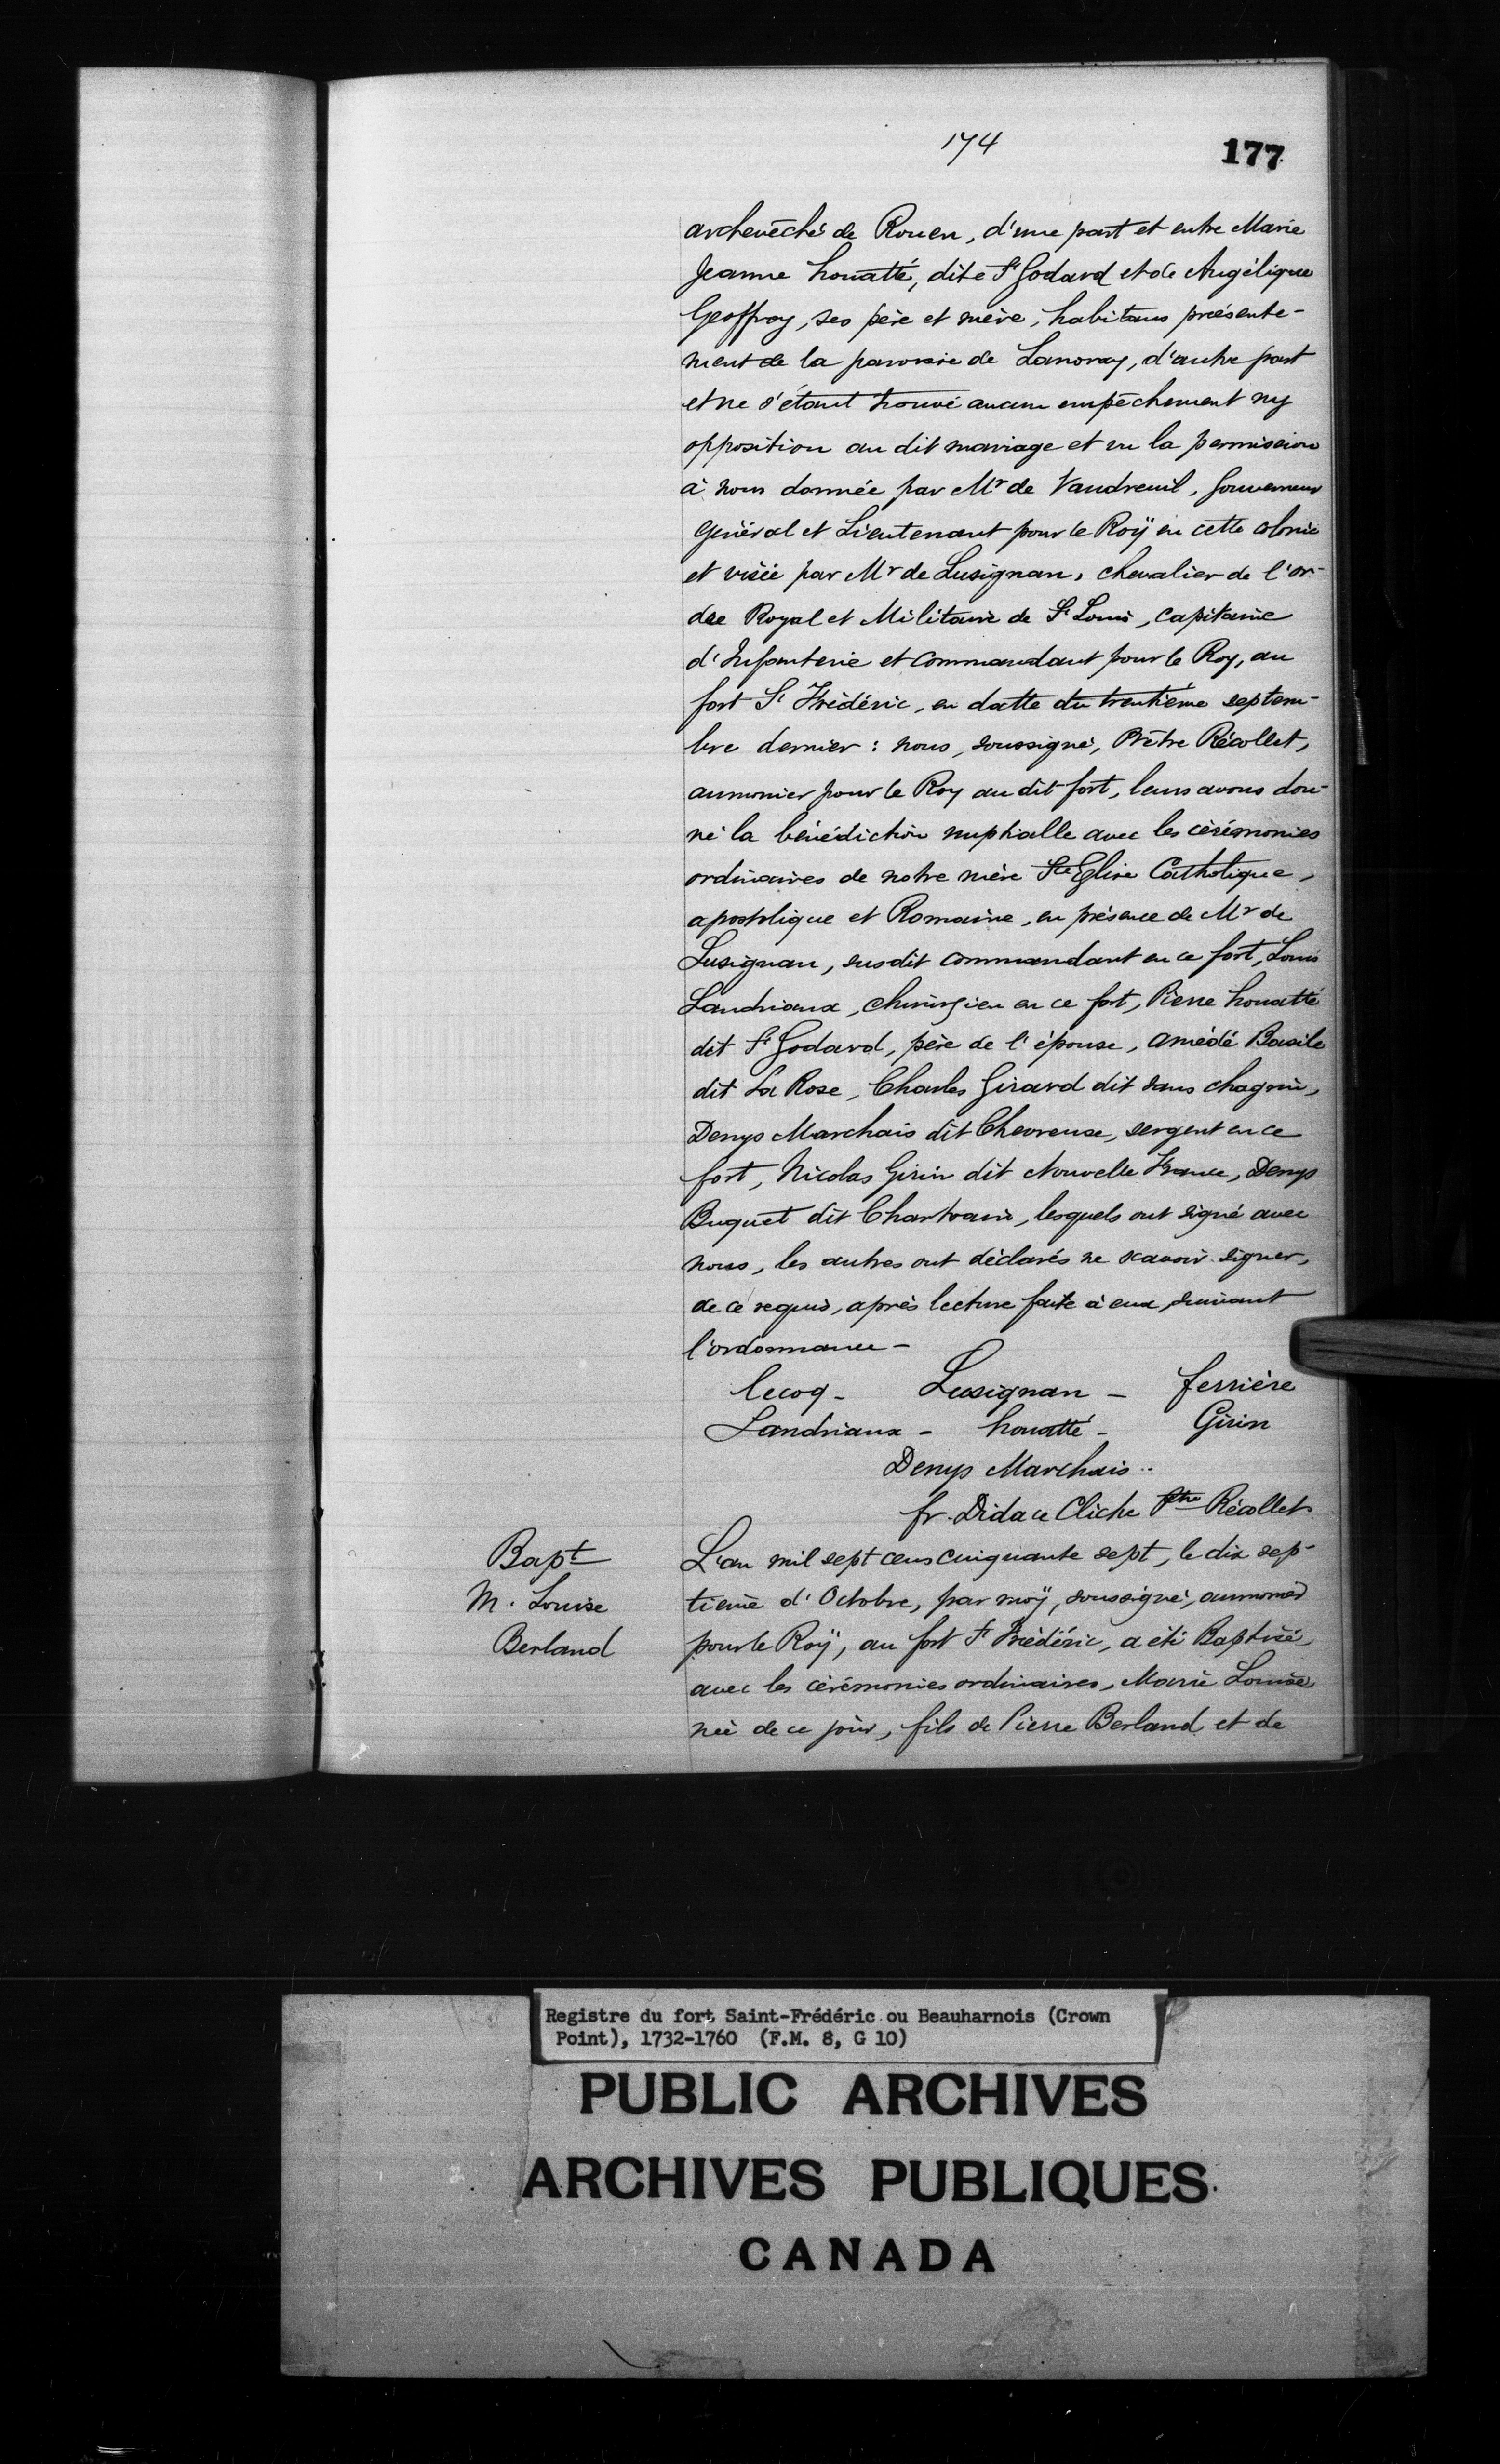 174
177
archevêché de Rouen, d'une part et entre Marie
Jeanne houatté, dite St Godard et de Angélique
Geoffroy, ses père et mère, habitans présente-
ment de la paroisse de Lanoray, d'autre part
et ne s'étant trouvé aucun empêchement ny
opposition au dit mariage et vu la permission
à nous donnée par Mr de Vaudreuil, Gouverneur
Général et Lieutenant pour le Roÿ en cette colonie
et visée par Mr de Lusignan, chevalier de l'or-
dre Royal et Militaire de St Louis, capitaine
d'Infanterie et commandant pour le Roy, au
fort St Frédéric, en datte du trentième septem-
bre dernier : nous, soussigné, Prêtre Récollet,
aumonier pour le Roy au dit fort, leurs avons don-
né la bénédiction nuptialle avec les cérémonies
ordinaires de notre mère Ste Eglise Catholique,
apostolique et Romaine, en présence de Mr de
Lusignan, susdit commandant en ce fort, Louis
Landriaux, chirurgien en ce fort, Pierre houatté
dit St Godard, père de l'épouse, Amédé Basile
dit La Rose, Charles Girard dit sans chagrin,
Denys Marchais dit Chevreuse, sergent en ce
fort, Nicolas Girin dit Nouvelle France, Denys
Buquet dit Chartrain, lesquels ont signé avec
nous, les autres ont déclarés ne scavoir signer,
de ce requis, après lecture faite à eux, suivant
l'ordonnance -
lecoq - Lusignan - ferrière
Landriaux - houatté - Girin
Denys Marchais ..
fr. Didace Cliche Ptre Récollet
Bapt
M. Louise
Berland
L'an mil sept cens cinquante sept, le dix sep-
tième d'Octobre, par moÿ, soussigné, aumonier
pour le Roÿ, au fort St Frédéric, a été Baptisé,
avec les cérémonies ordinaires, Marie Louise
née de ce jour, fils de Pierre Berland et de
Registre du fort Saint-Frédéric ou Beauharnois (Crown
Point), 1732-1760 (F.M. 8, G 10)
PUBLIC ARCHIVES
ARCHIVES PUBLIQUES
CANADA